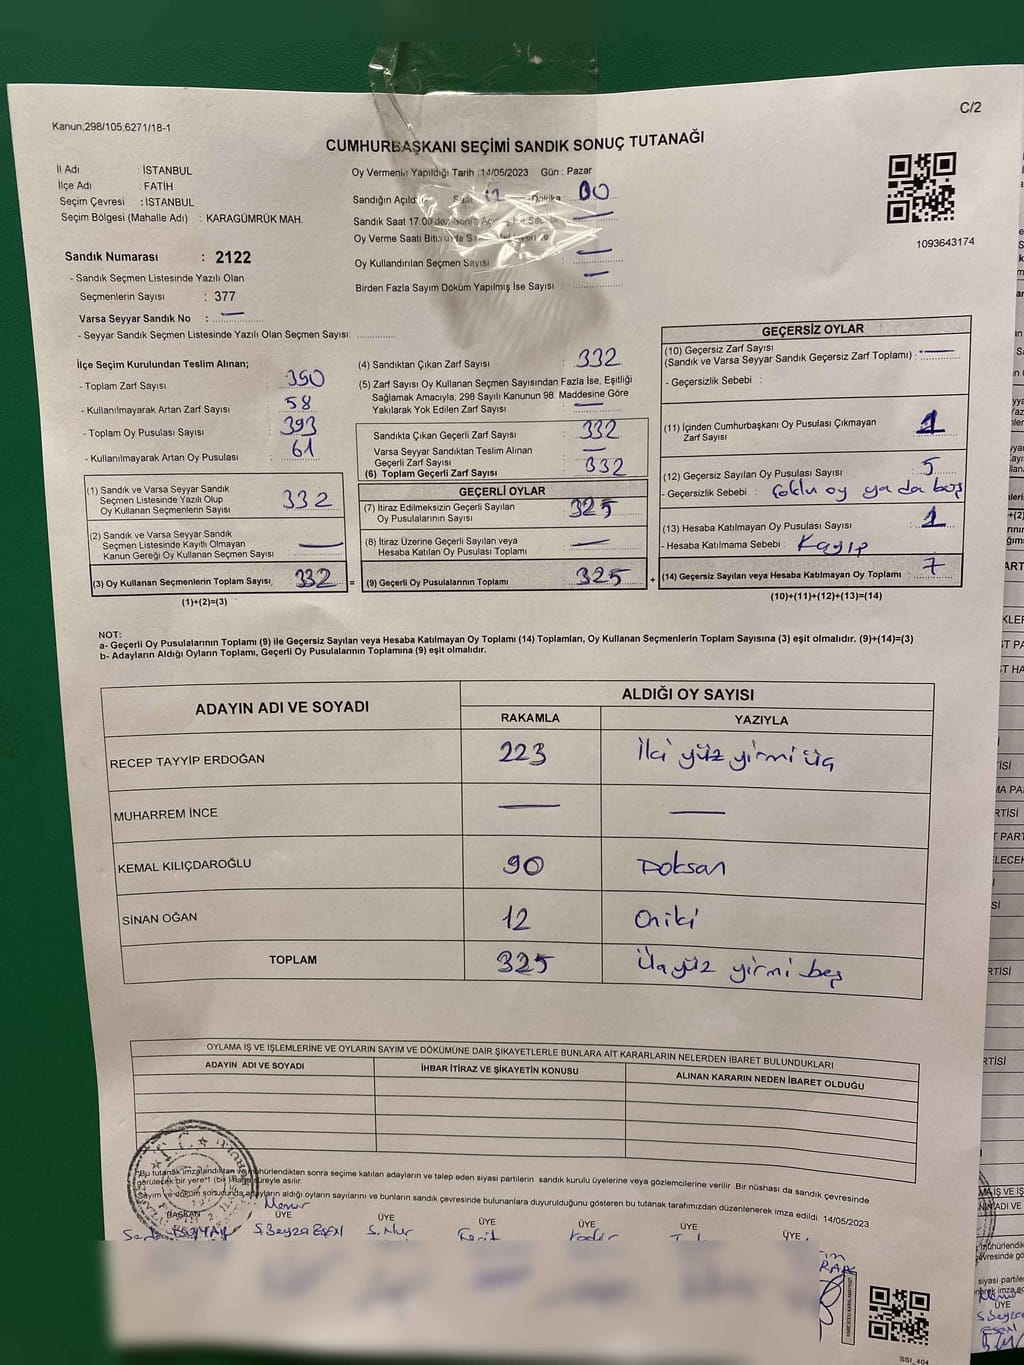 C/2
Kanun;298/105;6271/18-1
CUMHURBAŞKANI SEÇİMİ SANDIK SONUÇ TUTANAĞI
İl Adı : İSTANBUL
İlçe Adı : FATİH
Seçim Çevresi : İSTANBUL
Seçim Bölgesi (Mahalle Adı) : KARAGÜMRÜK MAH.
Oy Vermenin Yapıldığı Tarih :14/05/2023 Gün : Pazar
Sandığın Açıldığı Saat 17 Dakika 00
Sandık Saat 17:00'den Sonra
Oy Verme Saati
Oy Kullandırılan Seçmen Sayısı : —
Birden Fazla Sayım Döküm Yapılmış İse Sayısı : —
1093643174
Sandık Numarası : 2122
- Sandık Seçmen Listesinde Yazılı Olan
Seçmenlerin Sayısı : 377
Varsa Seyyar Sandık No : —
- Seyyar Sandık Seçmen Listesinde Yazılı Olan Seçmen Sayısı:
İlçe Seçim Kurulundan Teslim Alınan;
- Toplam Zarf Sayısı : 390
- Kullanılmayarak Artan Zarf Sayısı : 58
- Toplam Oy Pusulası Sayısı : 393
- Kullanılmayarak Artan Oy Pusulası : 61
(1) Sandık ve Varsa Seyyar Sandık
Seçmen Listesinde Yazılı Olup
Oy Kullanan Seçmenlerin Sayısı : 332
(2) Sandık ve Varsa Seyyar Sandık
Seçmen Listesinde Kayıtlı Olmayan
Kanun Gereği Oy Kullanan Seçmen Sayısı : —
(3) Oy Kullanan Seçmenlerin Toplam Sayısı, : 332 =
(1)+(2)=(3)
(4) Sandıktan Çıkan Zarf Sayısı : 332
(5) Zarf Sayısı Oy Kullanan Seçmen Sayısından Fazla İse, Eşitliği
Sağlamak Amacıyla; 298 Sayılı Kanunun 98. Maddesine Göre
Yakılarak Yok Edilen Zarf Sayısı : —
Sandıkta Çıkan Geçerli Zarf Sayısı : 332
Varsa Seyyar Sandıktan Teslim Alınan
Geçerli Zarf Sayısı : —
(6) Toplam Geçerli Zarf Sayısı : 332
GEÇERLİ OYLAR
(7) İtiraz Edilmeksizin Geçerli Sayılan
Oy Pusulalarının Sayısı : 325
(8) İtiraz Üzerine Geçerli Sayılan veya
Hesaba Katılan Oy Pusulası Toplamı : —
(9) Geçerli Oy Pusulalarının Toplamı : 325 +
GEÇERSİZ OYLAR
(10) Geçersiz Zarf Sayısı
(Sandık ve Varsa Seyyar Sandık Geçersiz Zarf Toplamı) : —
- Geçersizlik Sebebi :
(11) İçinden Cumhurbaşkanı Oy Pusulası Çıkmayan
Zarf Sayısı : 1
(12) Geçersiz Sayılan Oy Pusulası Sayısı : 5
- Geçersizlik Sebebi : Çoklu oy ya da boş
(13) Hesaba Katılmayan Oy Pusulası Sayısı : 1
- Hesaba Katılmama Sebebi : Kayıp
(14) Geçersiz Sayılan veya Hesaba Katılmayan Oy Toplamı : 7
(10)+(11)+(12)+(13)=(14)
NOT:
a- Geçerli Oy Pusulalarının Toplamı (9) ile Geçersiz Sayılan veya Hesaba Katılmayan Oy Toplamı (14) Toplamları, Oy Kullanan Seçmenlerin Toplam Sayısına (3) eşit olmalıdır. (9)+(14)=(3)
b- Adayların Aldığı Oyların Toplamı, Geçerli Oy Pusulalarının Toplamına (9) eşit olmalıdır.
ADAYIN ADI VE SOYADI ALDIĞI OY SAYISI
RAKAMLA YAZIYLA
RECEP TAYYİP ERDOĞAN 223 İki yüz yirmi üç
MUHARREM İNCE — —
KEMAL KILIÇDAROĞLU 90 Doksan
SİNAN OĞAN 12 Oniki
TOPLAM 325 Üçyüz yirmi beş
OYLAMA İŞ VE İŞLEMLERİNE VE OYLARIN SAYIM VE DÖKÜMÜNE DAİR ŞİKAYETLERLE BUNLARA AİT KARARLARIN NELERDEN İBARET BULUNDUKLARI
ADAYIN ADI VE SOYADI İHBAR İTİRAZ VE ŞİKAYETİN KONUSU ALINAN KARARIN NEDEN İBARET OLDUĞU
Bu tutanak imzalandıktan ve mühürlendikten sonra seçime katılan adayların ve talep eden siyasi partilerin sandık kurulu üyelerine veya gözlemcilerine verilir. Bir nüshası da sandık çevresinde
görülecek bir yere 1 (bir) hafta süreyle asılır.
Sayım ve döküm sonucunda adayların aldığı oyların sayılarını ve bunların sandık çevresinde bulunanlara duyurulduğunu gösteren bu tutanak tarafımızdan düzenlenerek imza edildi. 14/05/2023
BAŞKAN Memur ÜYE ÜYE ÜYE ÜYE ÜYE ÜYE
S.Beyza S.Nur Ferit Kadir
SSI_404